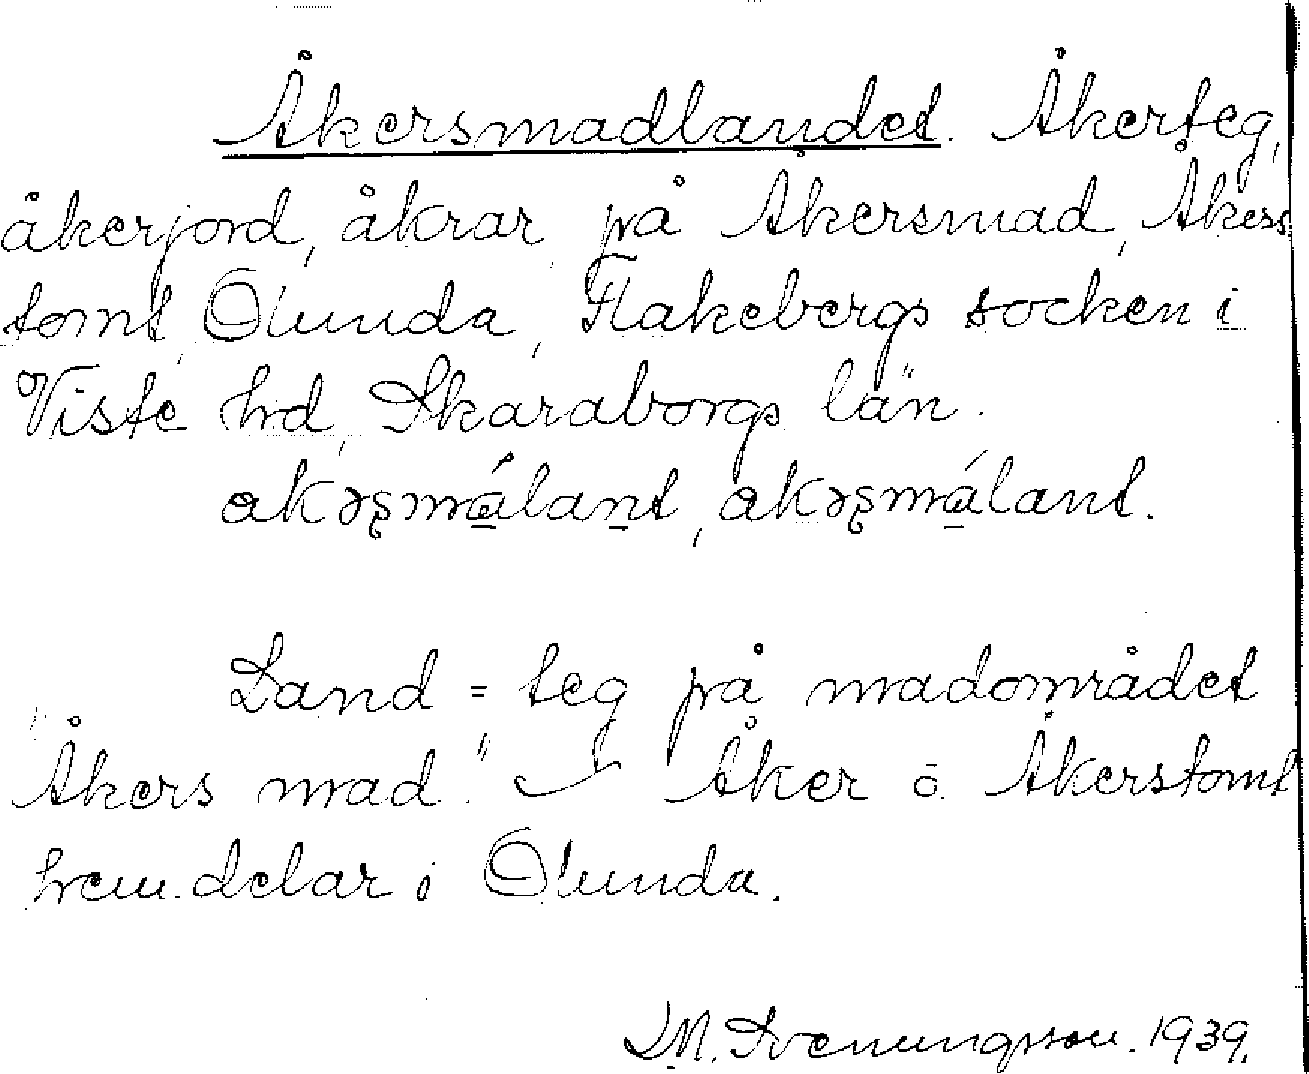 Åkersmadlandet. Åkerteg,
åkerjord, åkrar, på Åkersmad, Åkers
tomt, Ölunda, Flakebergs socken i
Viste hd, Skaraborgs län.
akəʂmálaṉt, akəʂmálant.
Land = teg på madområdet
"Åkers mad." Åker o. Åkerstomt
hem.delar i Ölunda.
M. Svenungsson. 1939.